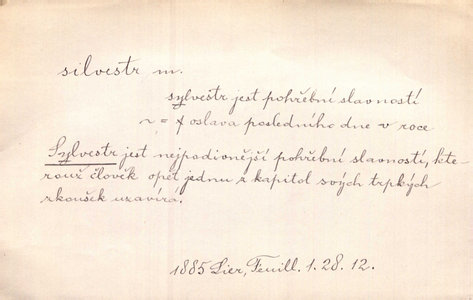 silvestr m.
sylvestr jest pohřební slavností
~ = oslava posledního dne v roce
Sylvestr jest nejpodivnější pohřební slavností, kte-
rouž člověk opět jednu z kapitol svých trpkých
zkoušek uzavírá.
1885 Lier, Feuill. 1. 28. 12.